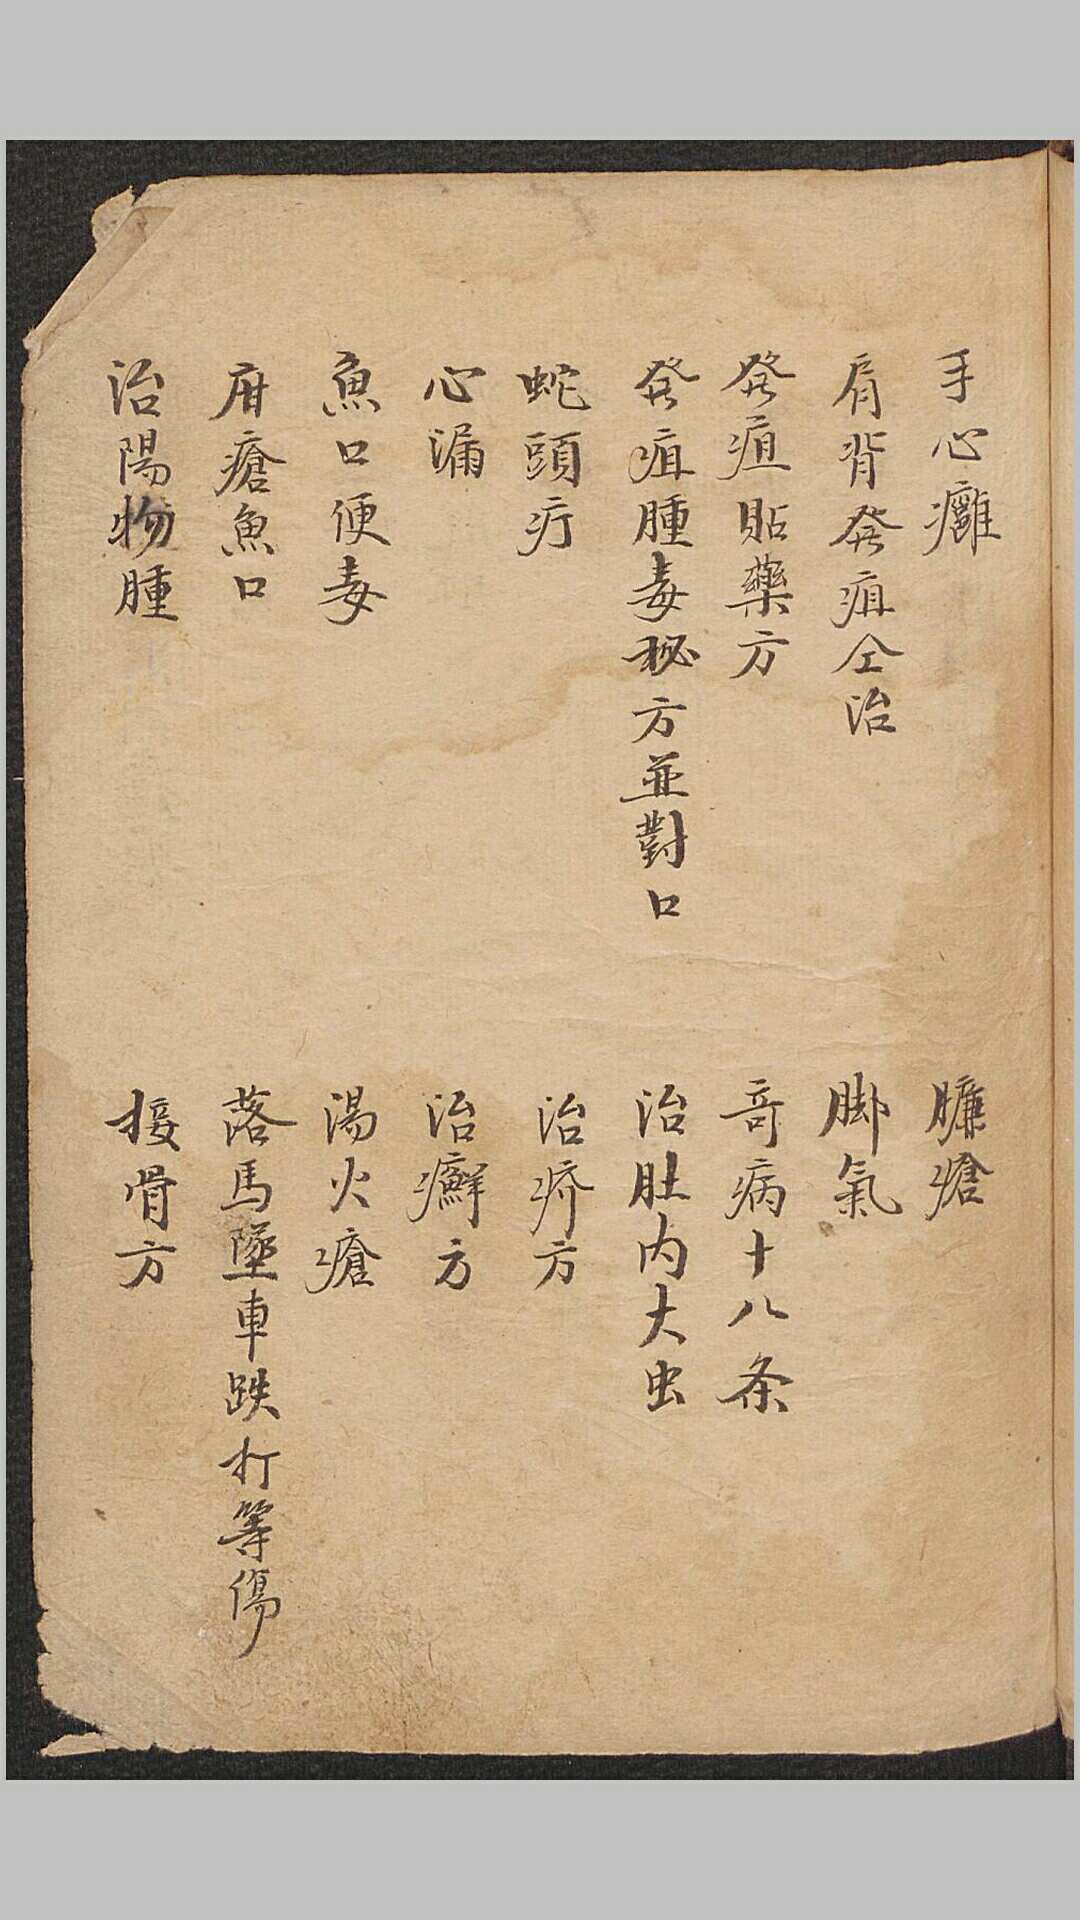 手心癰
肩背発疽仝治
発疽貼藥方
発疽腫毒秘方並對口
蛇頭疔
心漏
魚口便毒
疳瘡魚口
治陽物腫
臁瘡
脚氣
奇病十八条
治肚内大虫
治疥方
治癬方
湯火瘡
落馬墜車跌打等傷
接骨方